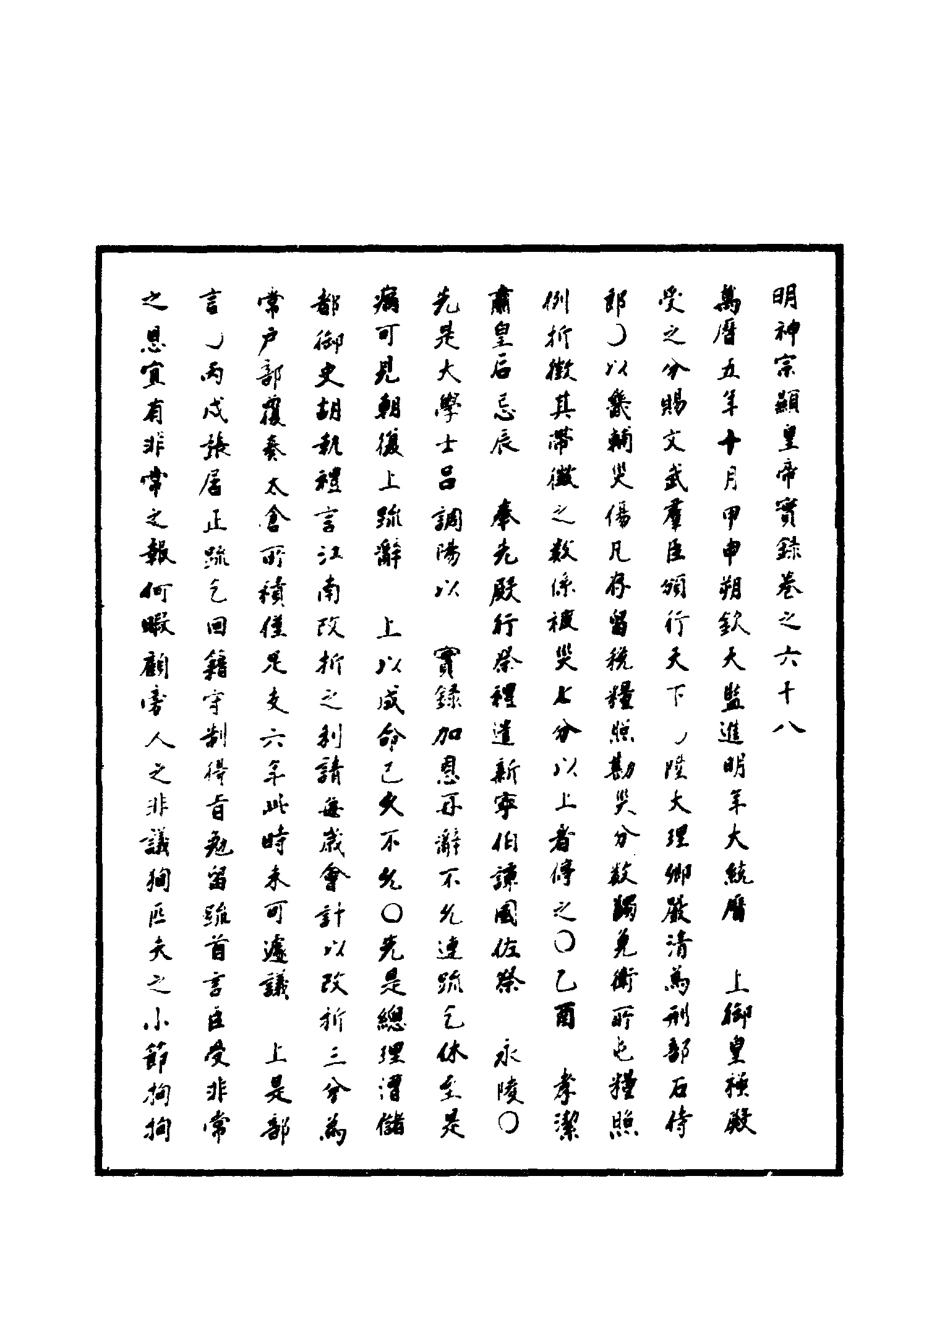 明神宗顯皇帝實錄卷之六十八
萬曆五年十月甲申朔欽天監進明年大統曆　上御皇極殿
受之分賜文武羣臣頒行天下○陞大理卿嚴清為刑部右侍
郎○以畿輔災傷凡存留稅糧照勘災分數蠲免衛所屯糧照
例折徵其帶徵之數係被災七分以上者停之○乙酉　孝潔
肅皇后忌辰　奉先殿行祭禮遣新寧伯譚國佐祭　永陵○
先是大學士呂調陽以　實錄加恩再辭不允連疏乞休至是
病可見朝復上疏辭　上以成命已久不允○先是總理漕儲
都御史胡執禮言江南改折之利請每歲會計以改折三分為
常戶部覆奏太倉所積僅足支六年此時未可遽議　上是部
言○丙戌張居正疏乞回籍守制得旨勉留疏首言臣受非常
之恩宜有非常之報何暇顧旁人之非議狥匹夫之小節拘拘